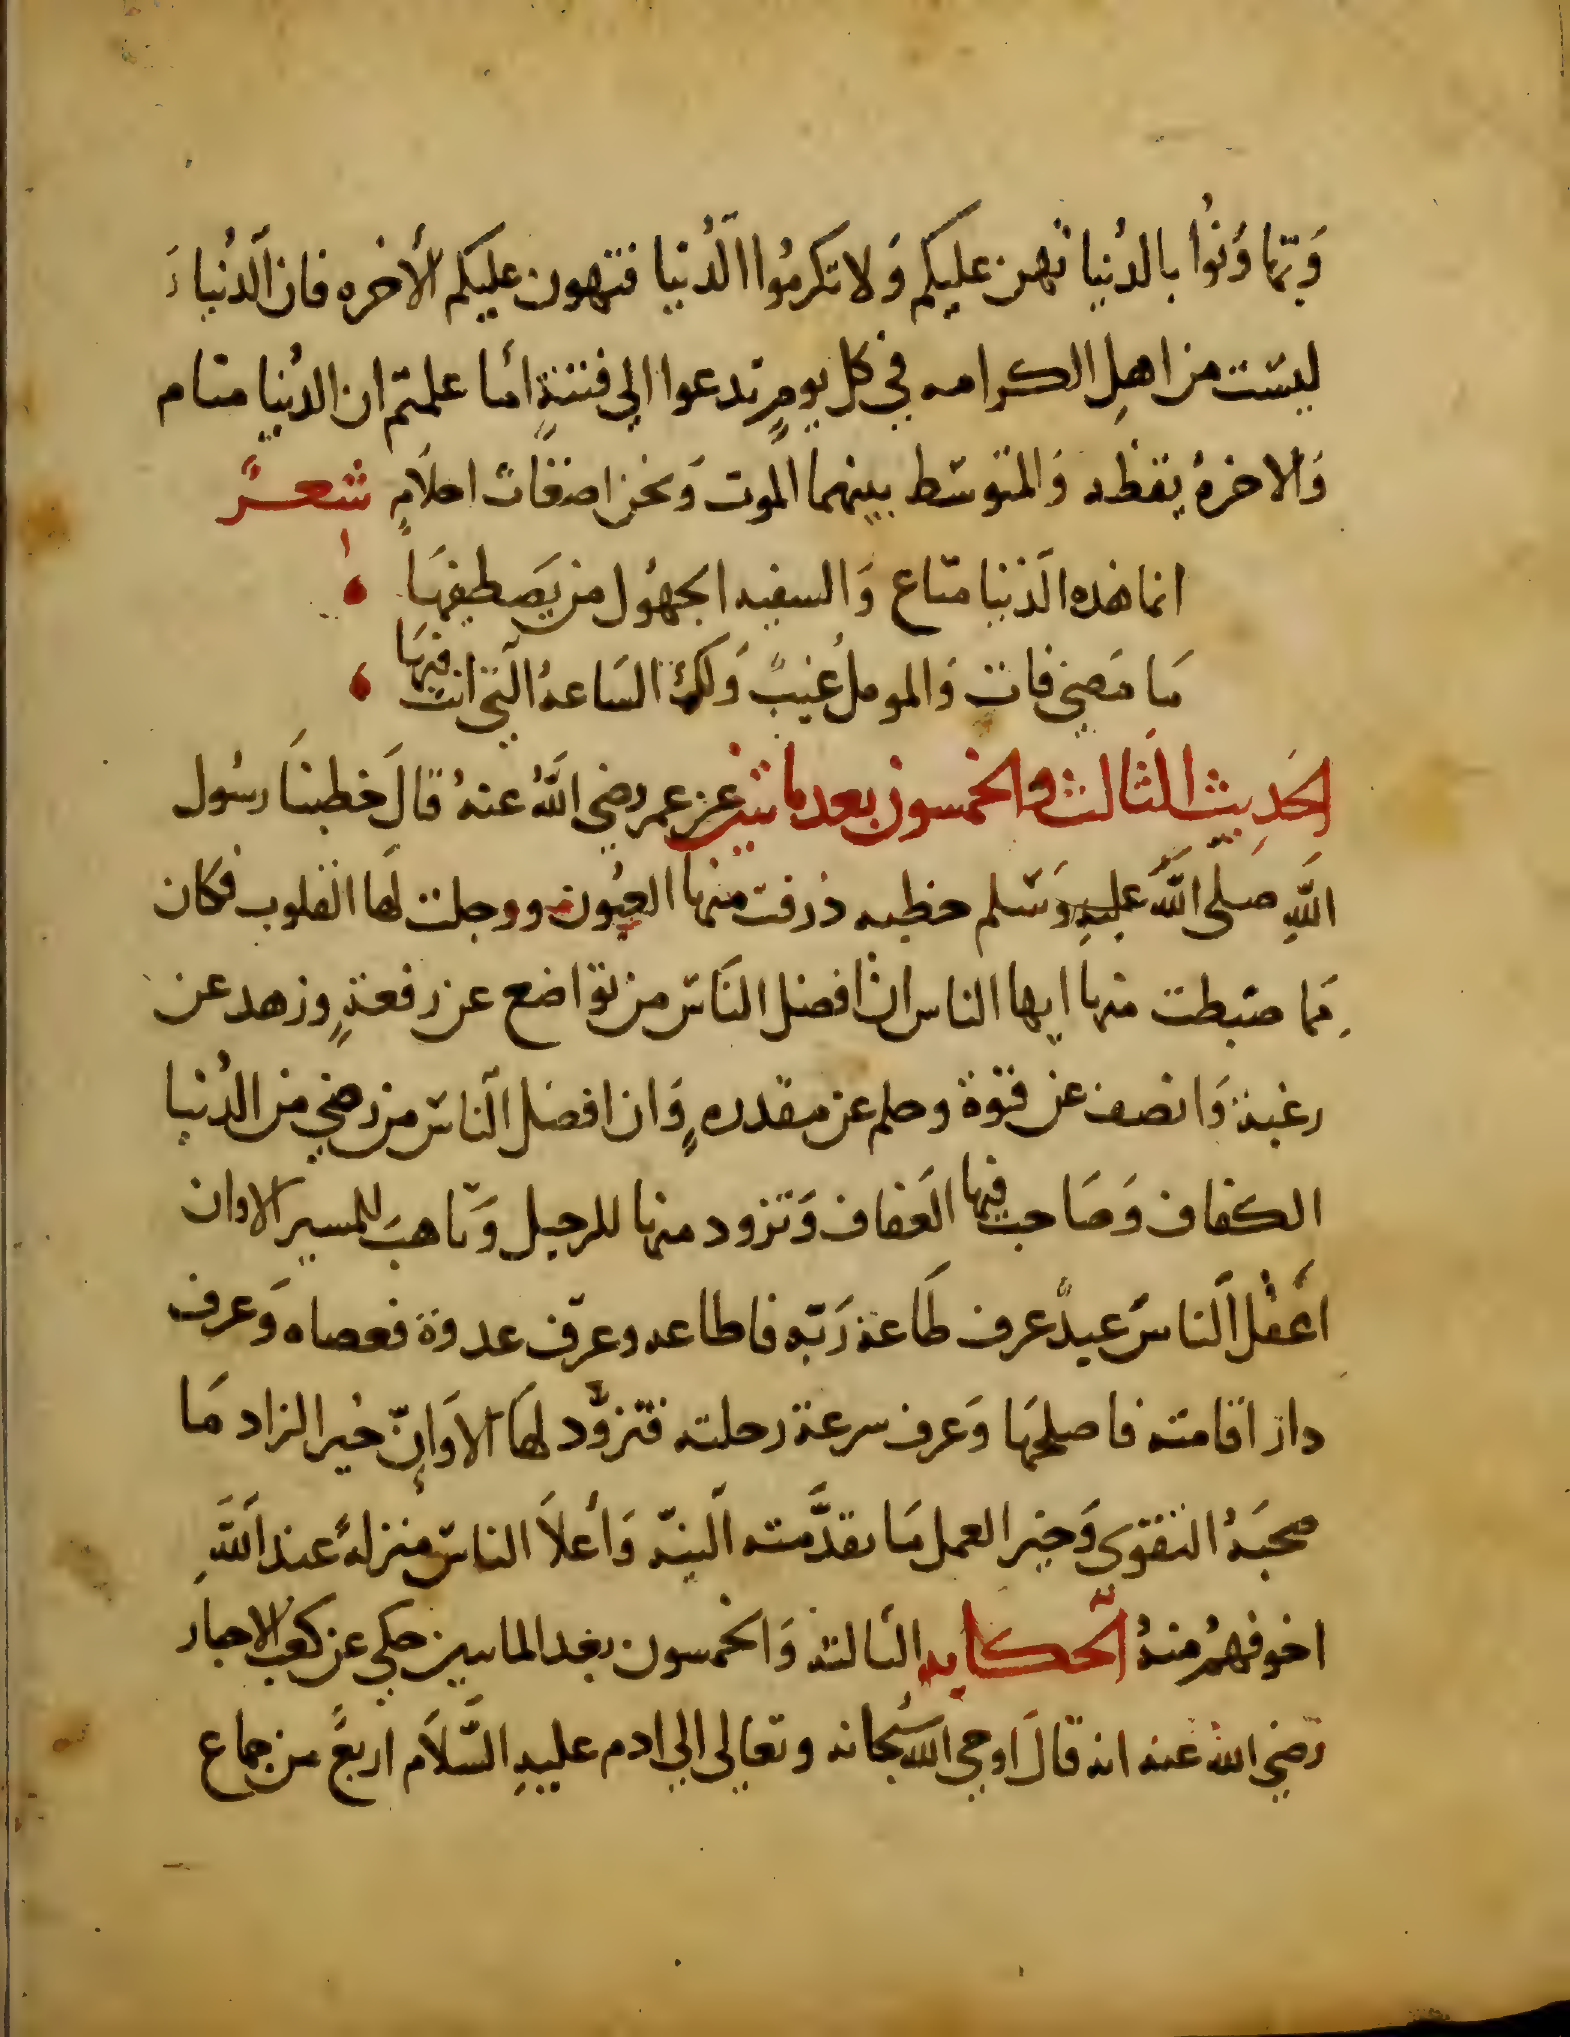 وَتهَاوَنُوا بالدُنيا تهن عليكم وَلا تكرمُوا الدُنيا فتهون عليكم الأخره فان الَدُنيا
ليسَت من اهلِ الكرامه في كل يومٍ تدعوا الي فتنةٍ أما علمتم ان الدُنيا منام
وَالاخرهُ يقظه وَالمتوسّط بينهما الموت وَنحن اضغاث احلاَمٍ شعرٌ
انما هذه الَدنيا متاع وَالسفيه الجهُول من يَصطفيهَا
مَا مَضي فات وَالمومل غيبٌ وَلك السَاعهُ الَتي انت فيهَا
الحَدِيث الثالث والخمسون بعد مائتين عن عمر رضي اللَّهُ عنهُ قالَ خطبنَا رسُول
اللَّهِ صَلى اللَّهُ عليهِ وَسَلم خطبه ذرفت منها العيُون ووجلت لهَا القلوب فكان
مَما ضبطت منها ايها الناس انَ افضل النَاس من تواضع عن رفعةٍ وزهد عن
رغبة وَانصف عن قوّة وحلم عن مقدرهٍ وَان افضل الَناس من رضي من الدُنيا
الكفاف وَصَاحب فيها العَفاف وَتزود منها للرحيل وَتاهبَ للمسير الا وان
اعْقل الَناس عبدٌ عرف طَاعة رَبّه فاطاعه وعرف عدوة فعصاه وَعرف
دار اقامته فاصلحهَا وَعرف سرعة رحلته فتزوَّد لهَا الا وَانّ خير الزاد مَا
صحبَهُ التقوى وَخير العمل مَا تقدَّمته الَنيّه وَأعلاَ الناس منزلهً عند اللَّهِ
اخوفهُم منهُ الحكايه الثالثة وَالخمسون بعد الماتين حكي عن كعب الاحبار
رَضي اللهُ عنه انه قالَ اوحي اللَّه سُبحانه وتعالى الي ادم عليهِ السَّلاَم اربعٌ من جماع